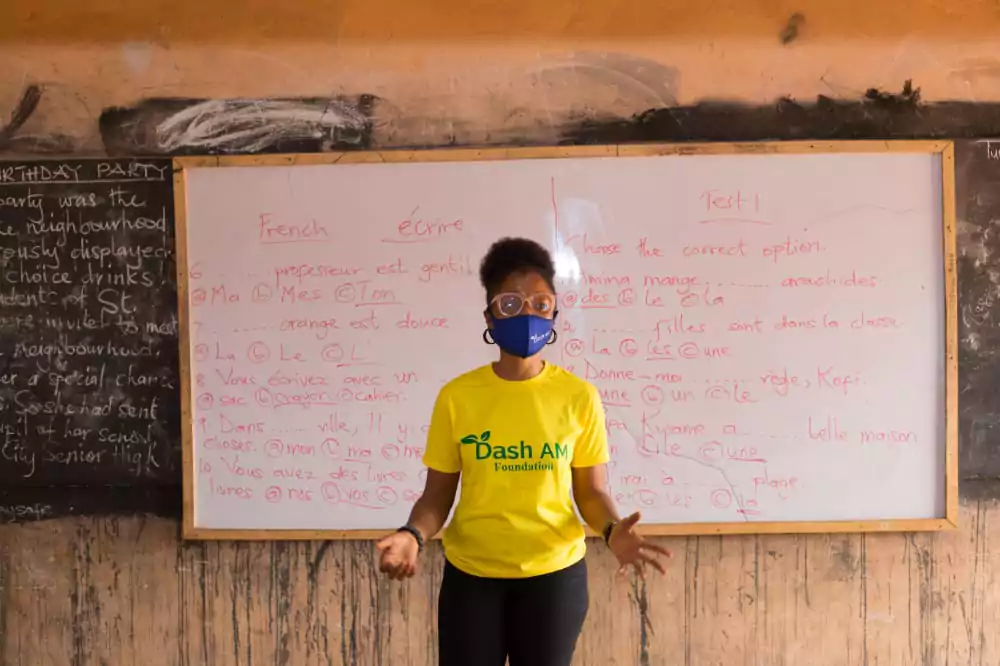 RTHDAY PARTY
party was the
neighbourhood
ously displayed
choice drinks
dents of St.
ere invited to meet
neighbourhood.
er a special chance
So she had sent
pil of her school
City Senior High
aysafe
French écrire
6 ....... professeur est gentil
ⓐ Ma ⓑ Mes ⓒ Ton
7 ....... orange est douce
ⓐ La ⓑ Le ⓒ L'
8 Vous écrivez avec un
ⓐ sac ⓑ crayon ⓒ cahier
9 Dans ...... ville, Il y
choses. ⓐ mon ⓑ ma ⓒ
10 Vous avez des livres
livres ⓐ nos ⓑ vos ⓒ
Test 1
Choose the correct option.
mange ....... arachides.
ⓐ des ⓑ Le ⓒ La
2 ....... filles sont dans la classe
ⓐ La ⓑ les ⓒ une
Donne-moi ....... règle, Kofi.
une ⓑ un ⓒ le
Kwame a ....... belle maison
Le ⓒ une
irai à ....... plage.
ⓑ les ⓒ la
Dash AM
Foundation